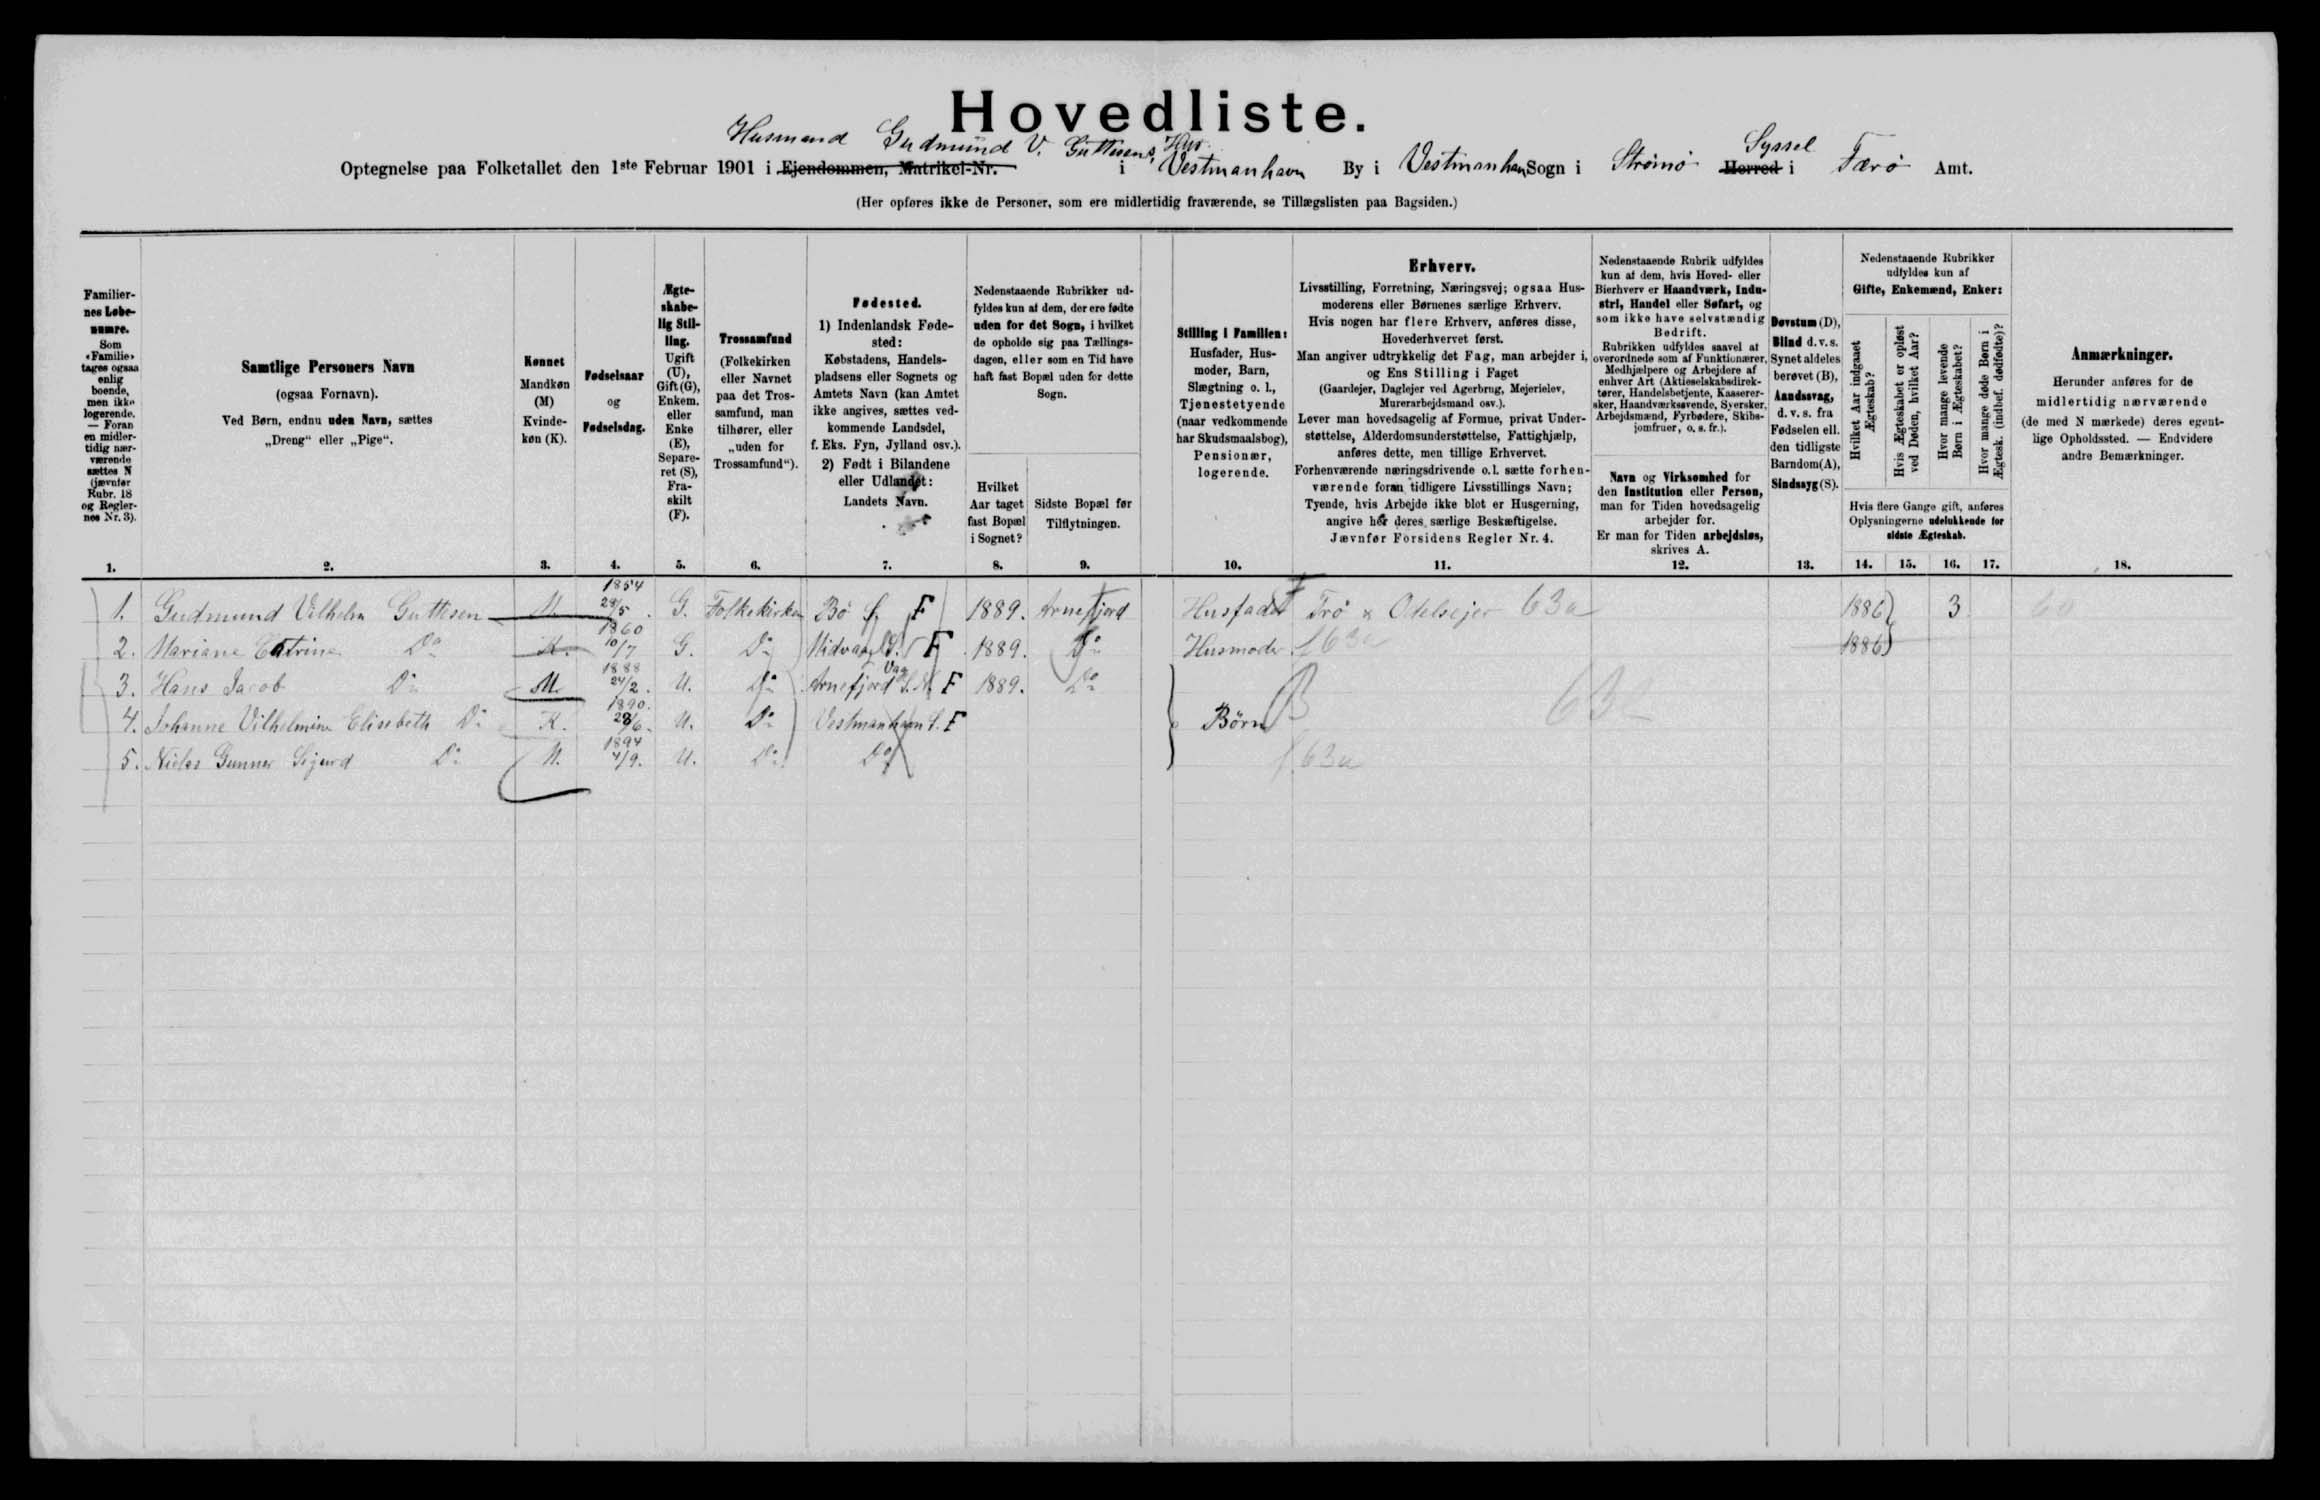 Hovedliste.
Husmand Gudmund V. Guttesens Hus Syssel
Optegnelse paa Folketallet den 1ste Februar 1901 i Ejendommen, Matrikel-Nr. i Vestmanhavn By i Vestmanhavn Sogn i Strømø Herred i Færø Amt.
(Her opføres ikke de Personer, som ere midlertidig fraværende, se Tillægslisten paa Bagsiden.)
Familier-
nes Løbe-
numre.
Som
«Familie»
tages ogsaa
enlig
boende,
men ikke
logerende.
— Foran
en midler-
tidig nær-
værende
sættes N
(jævnfør
Rubr. 18
og Regler-
nes Nr. 3).
1.
Samtlige Personers Navn
(ogsaa Fornavn).
Ved Børn, endnu uden Navn, sættes
„Dreng“ eller „Pige“.
2.
Kønnet
Mandkøn
(M)
Kvinde-
køn (K).
3.
Fødselsaar
og
Fødselsdag.
4.
Ægte-
skabe-
lig Stil-
ling.
Ugift
(U),
Gift (G),
Enkem.
eller
Enke
(E),
Separe-
ret (S),
Fra-
skilt
(F).
5.
Trossamfund
(Folkekirken
eller Navnet
paa det Tros-
samfund, man
tilhører, eller
„uden for
Trossamfund“).
6.
Fødested.
1) Indenlandsk Føde-
sted:
Købstadens, Handels-
pladsens eller Sognets og
Amtets Navn (kan Amtet
ikke angives, sættes ved-
kommende Landsdel,
f. Eks. Fyn, Jylland osv.).
2) Født i Bilandene
eller Udlandet:
Landets Navn.
7.
Nedenstaaende Rubrikker ud-
fyldes kun af dem, der ere fødte
uden for det Sogn, i hvilket
de opholde sig paa Tællings-
dagen, eller som en Tid have
haft fast Bopæl uden for dette
Sogn.
Hvilket
Aar taget
fast Bopæl
i Sognet?
8.
Sidste Bopæl før
Tilflytningen.
9.
Stilling i Familien:
Husfader, Hus-
moder, Barn,
Slægtning o. l.,
Tjenestetyende
(naar vedkommende
har Skudsmaalsbog),
Pensionær,
logerende.
10.
Erhverv.
Livsstilling, Forretning, Næringsvej; ogsaa Hus-
moderens eller Børnenes særlige Erhverv.
Hvis nogen har flere Erhverv, anføres disse,
Hovederhvervet først.
Man angiver udtrykkelig det Fag, man arbejder i,
og Ens Stilling i Faget
(Gaardejer, Daglejer ved Agerbrug, Mejerielev,
Murerarbejdsmand osv.).
Lever man hovedsagelig af Formue, privat Under-
støttelse, Alderdomsunderstøttelse, Fattighjælp,
anføres dette, men tillige Erhvervet.
Forhenværende næringsdrivende o. l. sætte forhen-
værende foran tidligere Livsstillings Navn;
Tyende, hvis Arbejde ikke blot er Husgerning,
angive her deres særlige Beskæftigelse.
Jævnfør Forsidens Regler Nr. 4.
11.
Nedenstaaende Rubrik udfyldes
kun af dem, hvis Hoved- eller
Bierhverv er Haandværk, Indu-
stri, Handel eller Søfart, og
som ikke have selvstændig
Bedrift.
Rubrikken udfyldes saavel af
overordnede som af Funktionærer,
Medhjælpere og Arbejdere af
enhver Art (Aktieselskabsdirek-
tører, Handelsbetjente, Kasserer-
sker, Haandværkssvende, Syersker,
Arbejdsmænd, Fyrbødere, Skibs-
jomfruer, o. s. fr.).
Navn og Virksomhed for
den Institution eller Person,
man for Tiden hovedsagelig
arbejder for.
Er man for Tiden arbejdsløs,
skrives A.
12.
Døvstum (D),
Blind d. v. s.
Synet aldeles
berøvet (B),
Aandssvag,
d. v. s. fra
Fødselen ell.
den tidligste
Barndom (A),
Sindssyg (S).
13.
Nedenstaaende Rubrikker
udfyldes kun af
Gifte, Enkemænd, Enker:
Hvilket Aar indgaaet
Ægteskab?
Hvis Ægteskabet er opløst
ved Døden, hvilket Aar?
Hvor mange levende
Børn i Ægteskabet?
Hvor mange døde Børn i
Ægtesk. (indbef. dødfødte)?
Hvis flere Gange gift, anføres
Oplysningerne udelukkende for
sidste Ægteskab.
14. 15. 16. 17.
Anmærkninger.
Herunder anføres for de
midlertidig nærværende
(de med N mærkede) deres egent-
lige Opholdssted. — Endvidere
andre Bemærkninger.
18.
1. Gudmund Vilhelm Guttesen M. 1854 29/5. G. Folkekirken Bø S. F 1889. Arnefjord Husfader Trø & Odelsejer 63a 1886 3 60
2. Mariane Catrine Do K. 1860 10/7 G. Do Midvaag S. F 1889. Do Husmoder f 63a 1886
3. Hans Jacob Do M. 1888 24/2. U. Do Arnefjord Vaag S. N. F 1889. Do
4. Johanne Vilhelmine Elisebeth Do K. 1890. 28/6. U. Do Vestmanhavn S. F Børn B 63a
5. Niclas Gunnar Sigurd Do M. 1894 4/9. U. Do Do f. 63a